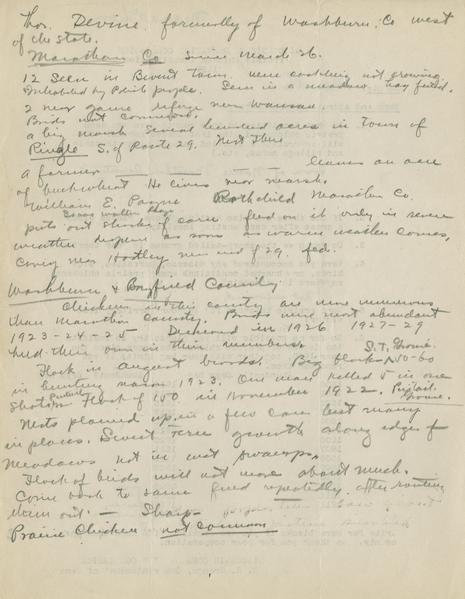 Thos. Devine formerly of Washburn, Co west
of the state.
Marathon Co since March 26.
12 Seen in Bevent town. were cackling not crowing.
Inhabited by Polish people. Seen in a meadow hay field.
2 near game refuge near Wausau.
Birds not common.
a big marsh Several hundred acres in town of
Ringle S. of Route 29. Nest there
A farmer leaves an acre
of buckwheat He lives near marsh.
William E. Payne Rothchild Marathon Co.
puts out shocks of corn feed on it only in severe
weather disperse as soon as warm weather comes,
Corey near Hatley near end of 29. fed.
Washburn & Bayfield County
Chicken in this county are more numerous
than Marathon County. Birds were most abundant
1923-24-25 Decreased in 1926 1927-29
held their own in their numbers. S.T. Grouse.
Flock in august broods. Big flock 50-60
in hunting season 1923. One man killed 5 in one
Shot. Flock of 100 in November 1922. Pintail Grouse.
Nests plowed up in a few cases best many
in places. Sweet Fern growth along edge of
Meadows not in wet swamps.
Flock of birds will not move about much.
Come back to same field repeatedly after routing
them out. — Sharp
Prairie Chicken not common